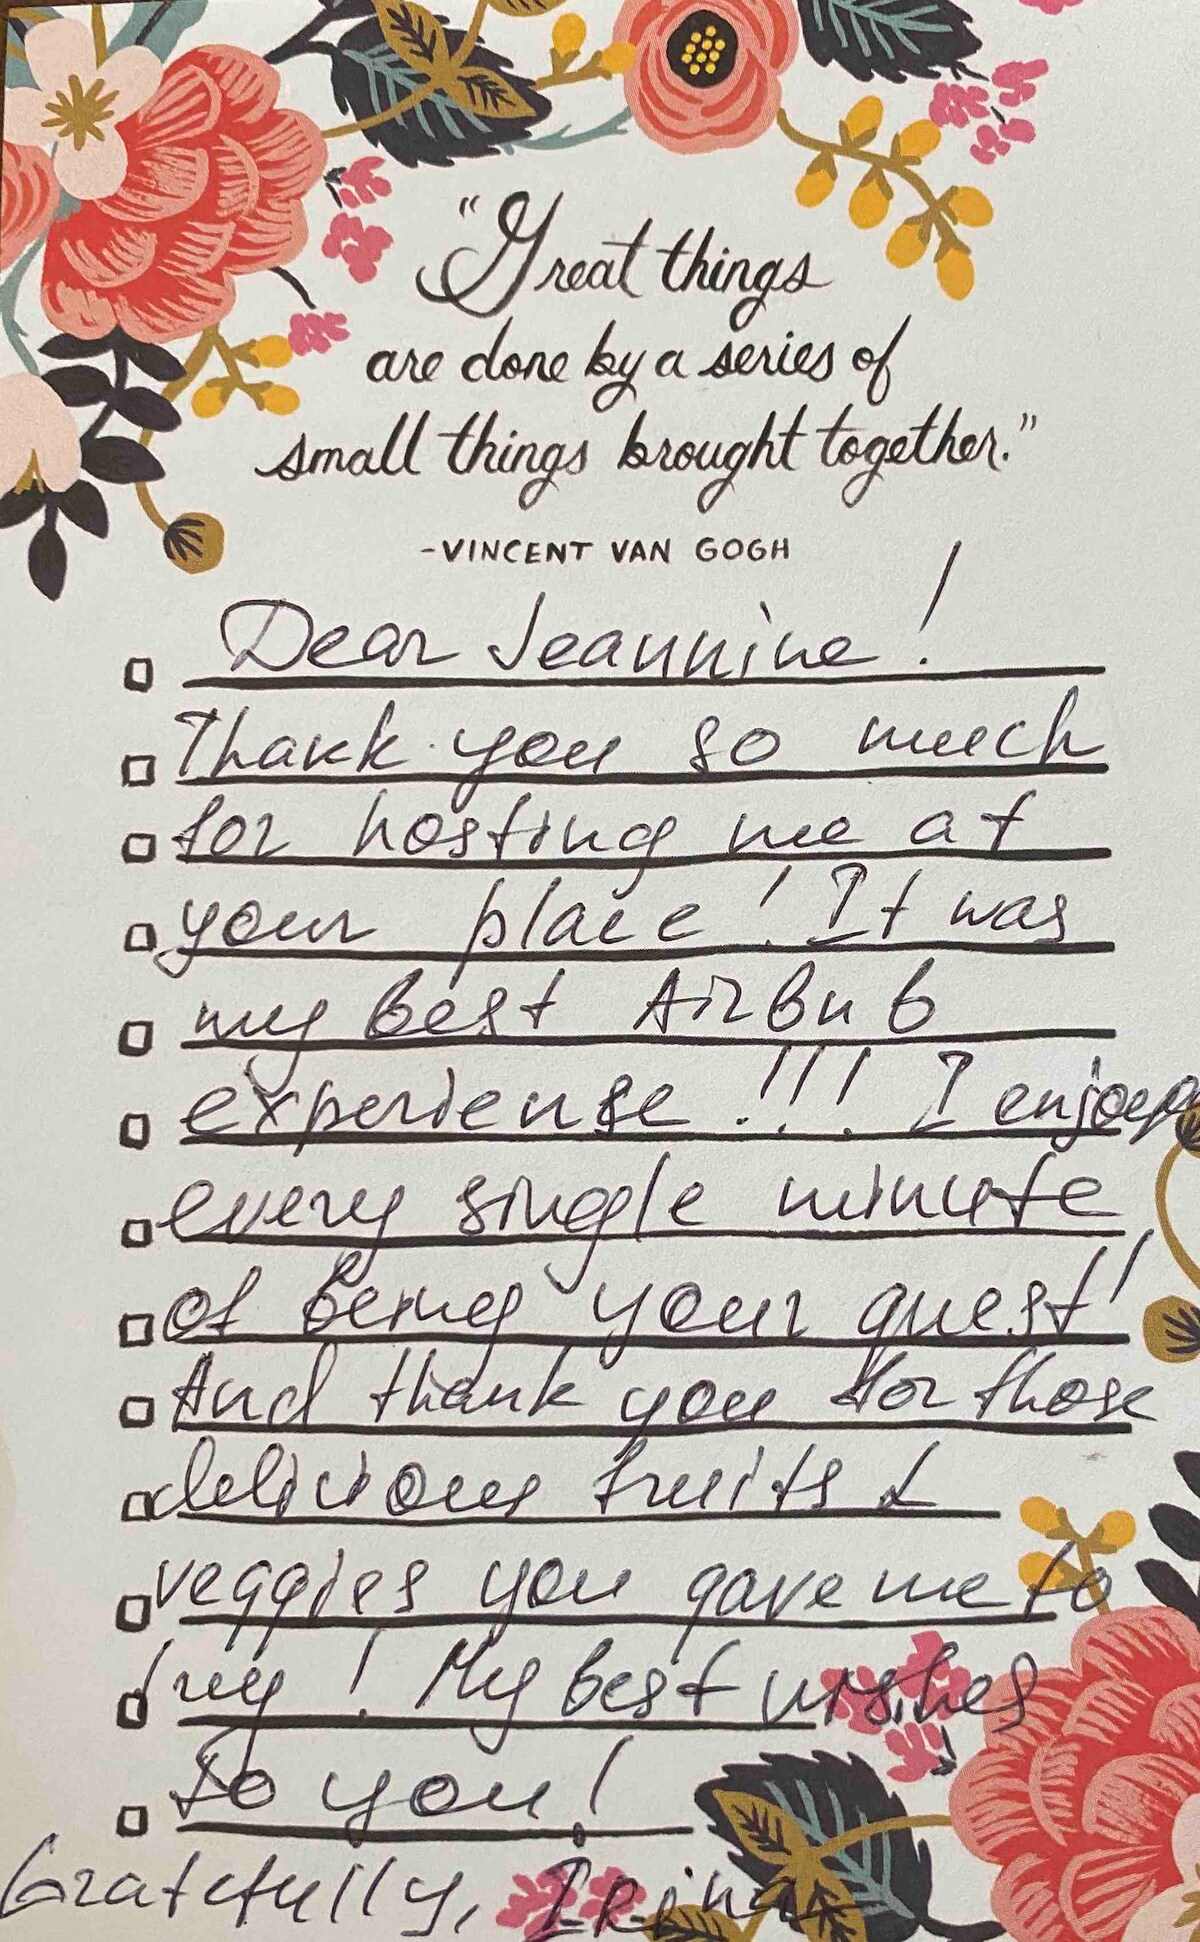 "Great things
are done by a series of
small things brought together."
-VINCENT VAN GOGH
Dear Jeannine!
Thank you so much
for hosting me at
your place! It was
my best AirBnB
experiense!!! I enjoy
every single minute
of being your guest!
And thank you for those
delicious fruits &
veggies you gave me to
try! My best wishes
to you!
Gratefully, Irina